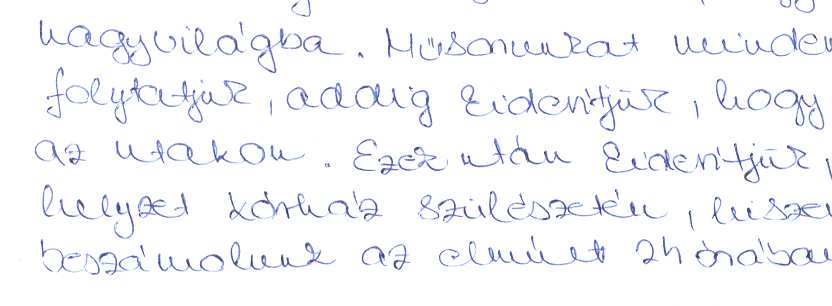 nagyvilágba. Műsorunkat minden
folytatjuk, addig kiderítjük, hogy
az utakon. Ezek után kiderítjük,
helyzet kórház szülészetén, hiszen
beszámolunk az elmúlt 24 órában